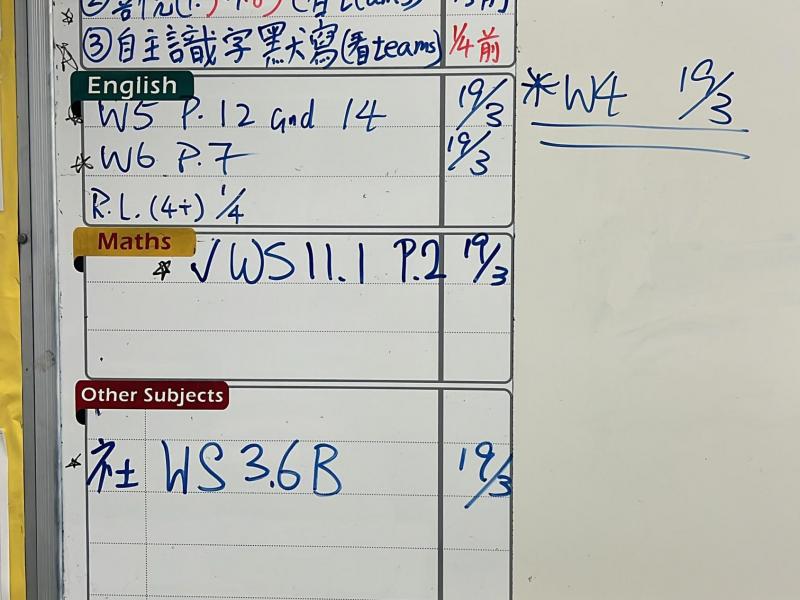 ③自主識字默寫(看teams) 1/4前
English
W5 P.12 and 14 19/3
*W4 19/3
W6 P.7 19/3
R.L.(4+) 1/4
Maths
✓WS 11.1 P.2 19/3
Other Subjects
社 WS 3.6B 19/3